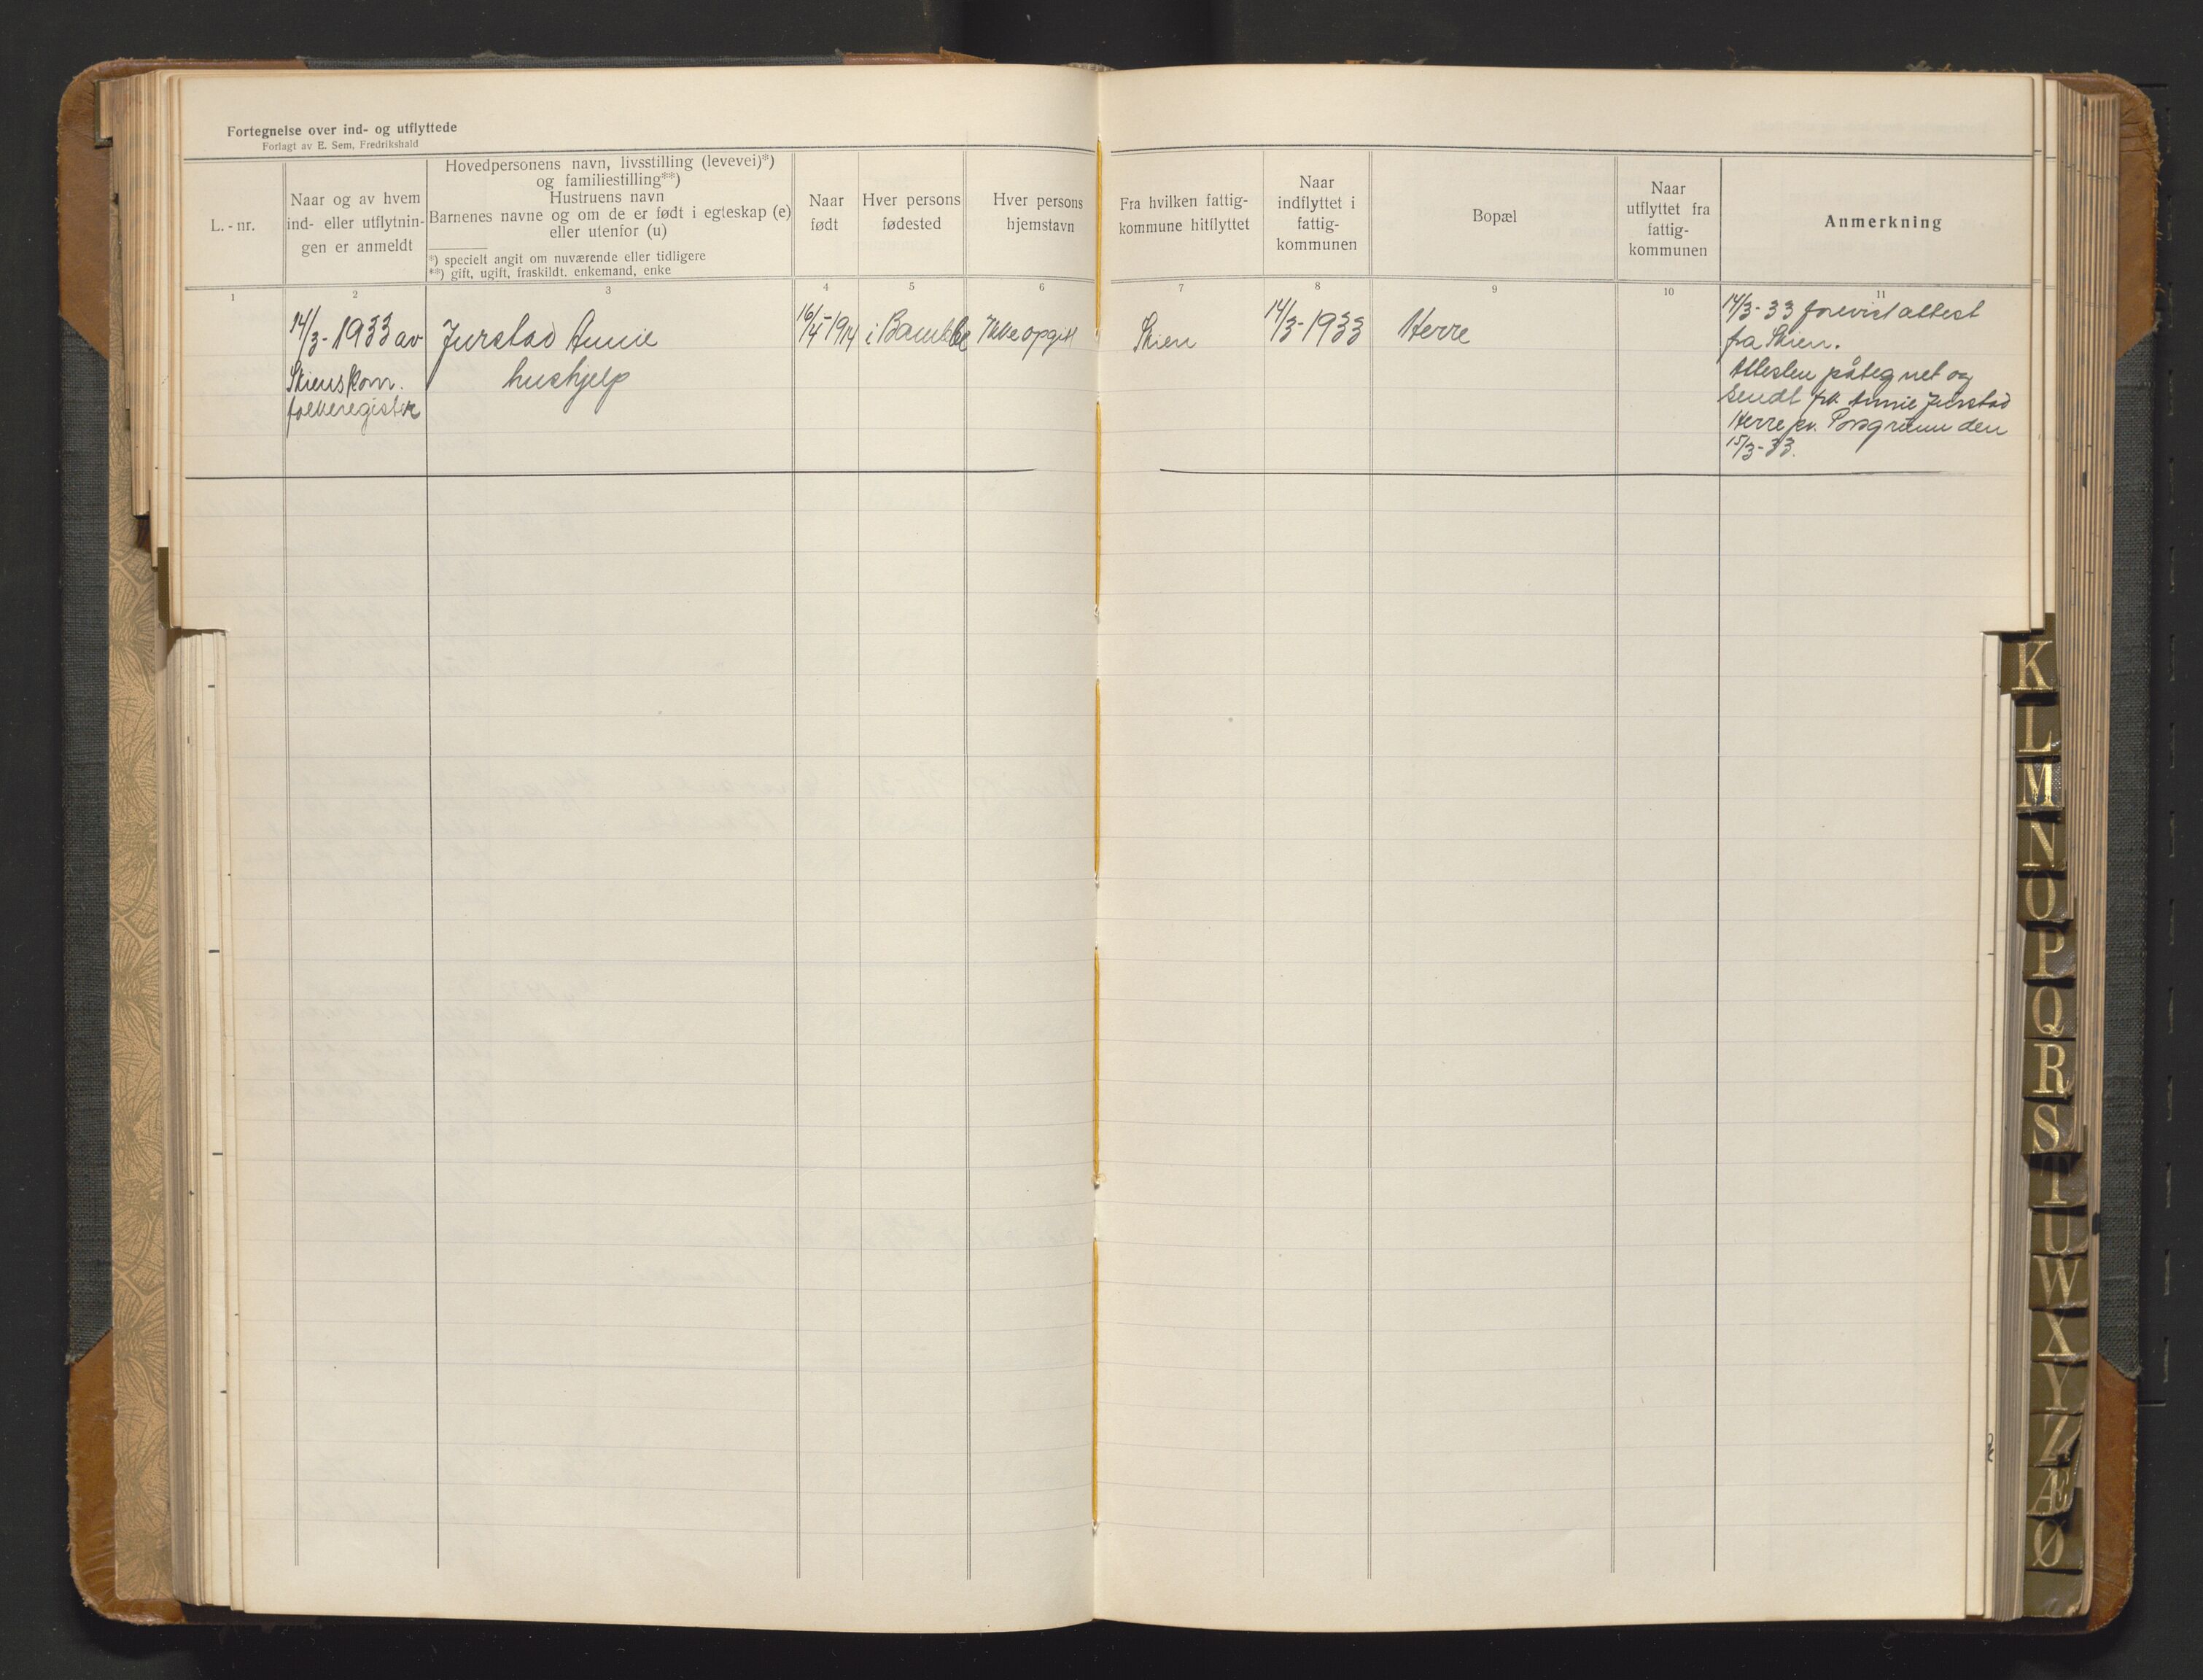 Fortegnelse over ind- og utflyttede
Forlagt av E. Sem, Fredrikshald
L. - nr.
Naar og av hvem
ind- eller utflytnin-
gen er anmeldt
Hovedpersonens navn, livsstilling (levevei)*)
og familiestilling**)
Hustruens navn
Barnenes navne og om de er født i egteskap (e)
eller utenfor (u)
*) specielt angit om nuværende eller tidligere
**) gift, ugift, fraskildt. enkemand, enke
Naar
født
Hver persons
fødested
Hver persons
hjemstavn
Fra hvilken fattig-
kommune hitflyttet
Naar
indflyttet i
fattig-
kommunen
Bopæl
Naar
utflyttet fra
fattig-
kommunen
Anmerkning
1 2 3 4 5 6 7 8 9 10 11
14/3-1933 av
Skiens kom.
folkeregister
Jurstad Annie
hushjelp
16/4-1914
i Bamble
Ikke opgitt
Skien
14/3-1933
Herre
14/3-33 forevist attest
fra Skien.
Attesten påtegnet og
sendt frk. Annie Jurstad
Herre pr. Porsgrunn den
15/3-33.
K
L
M
N
O
P
Q
R
S
T
U
W
X
Y
Z
Æ
Ø